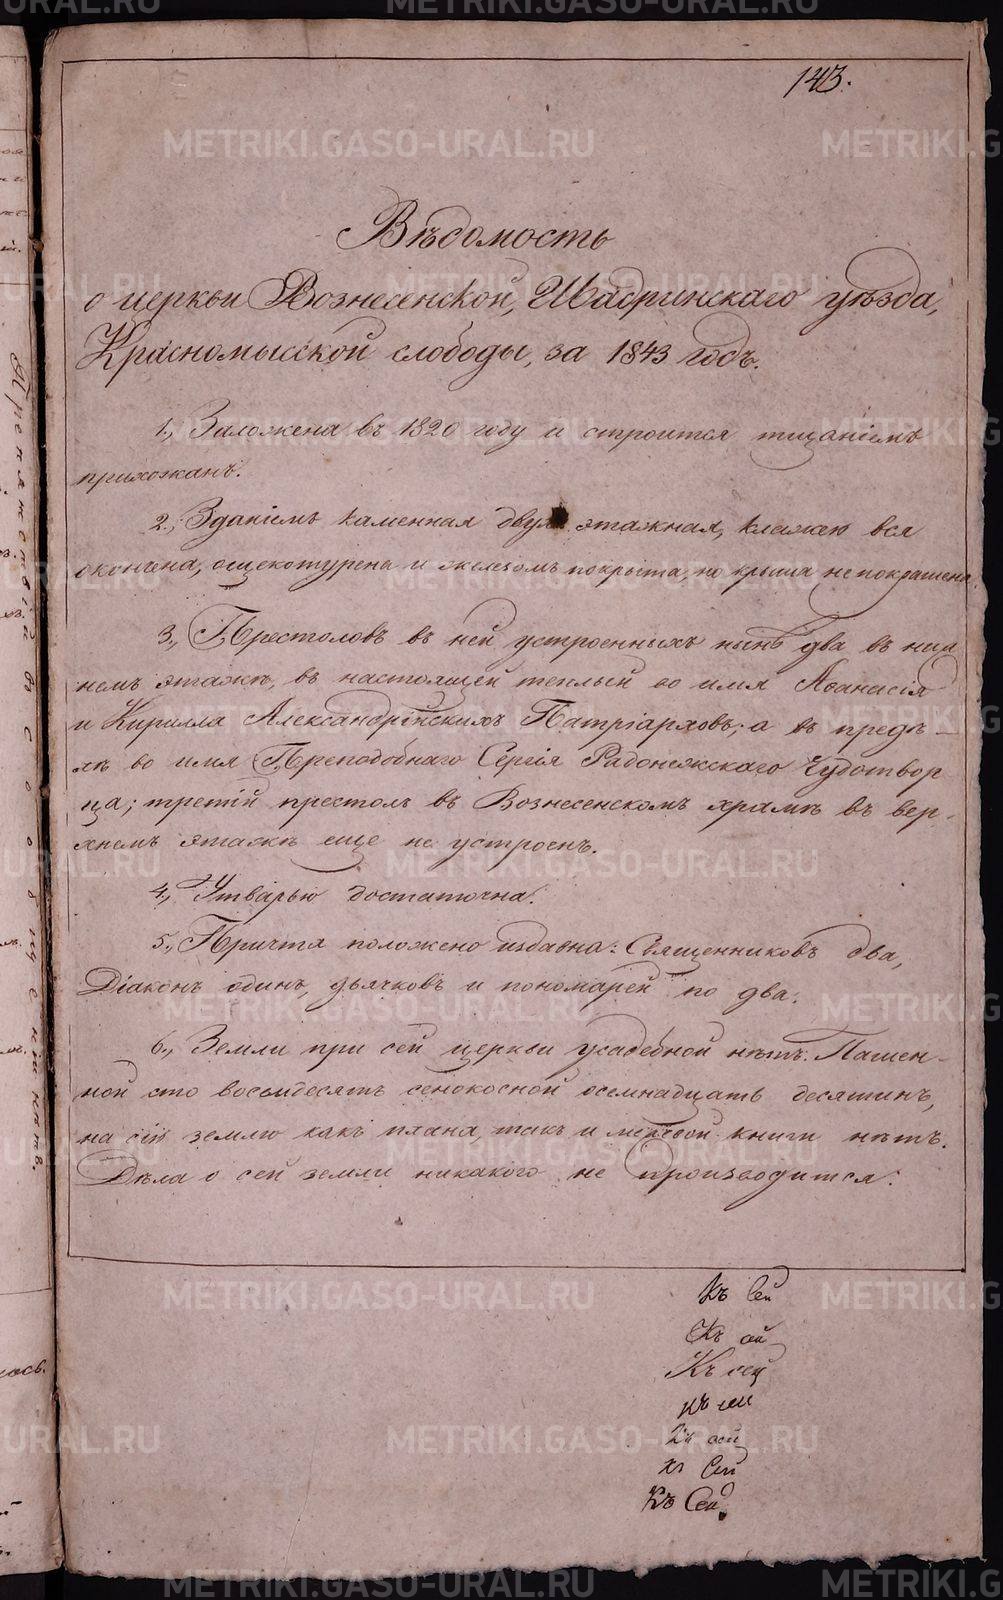 143.
Вѣдомость
о церкви Вознесенской, Шадринскаго уѣзда,
Красномысской слободы, за 1843 годъ.
1., Заложена въ 1820 году и строится тщаніемъ
прихожанъ.
2., Зданіемъ каменная двух этажная, кладкою вся
окончена, ощекотурена и железомъ покрыта, но крыша не покрашена.
3., Престоловъ въ ней устроенныхъ нынѣ два въ ниж
немъ этажѣ, въ настоящей теплый во имя Афанасія
и Кирилла Александрійскихъ Патріарховъ; а въ предѣ-
лѣ во имя Преподобнаго Сергія Радонежскаго Чудотвор
ца; третій престолъ въ Вознесенскомъ храмѣ въ вер-
хнемъ этажѣ еще не устроенъ.
4., Утварью достаточна.
5., Причтя положено издавна: Священниковъ два,
Діаконъ одинъ, дьячковъ и пономарей по два.
6., Земли при сей церкви усадебной нѣтъ. Пашен-
ной сто восемдесятъ сенокосной осемнадцать десятинъ,
на сію землю какъ плана, такъ и межевой книги нѣтъ.
Дѣла о сей земли никакого не производится.
Къ Сей
Къ сей
Къ сей
къ сей
Къ сей
къ Сей
Къ Сей
Препятствій
METRIKI.GASO-URAL.RU